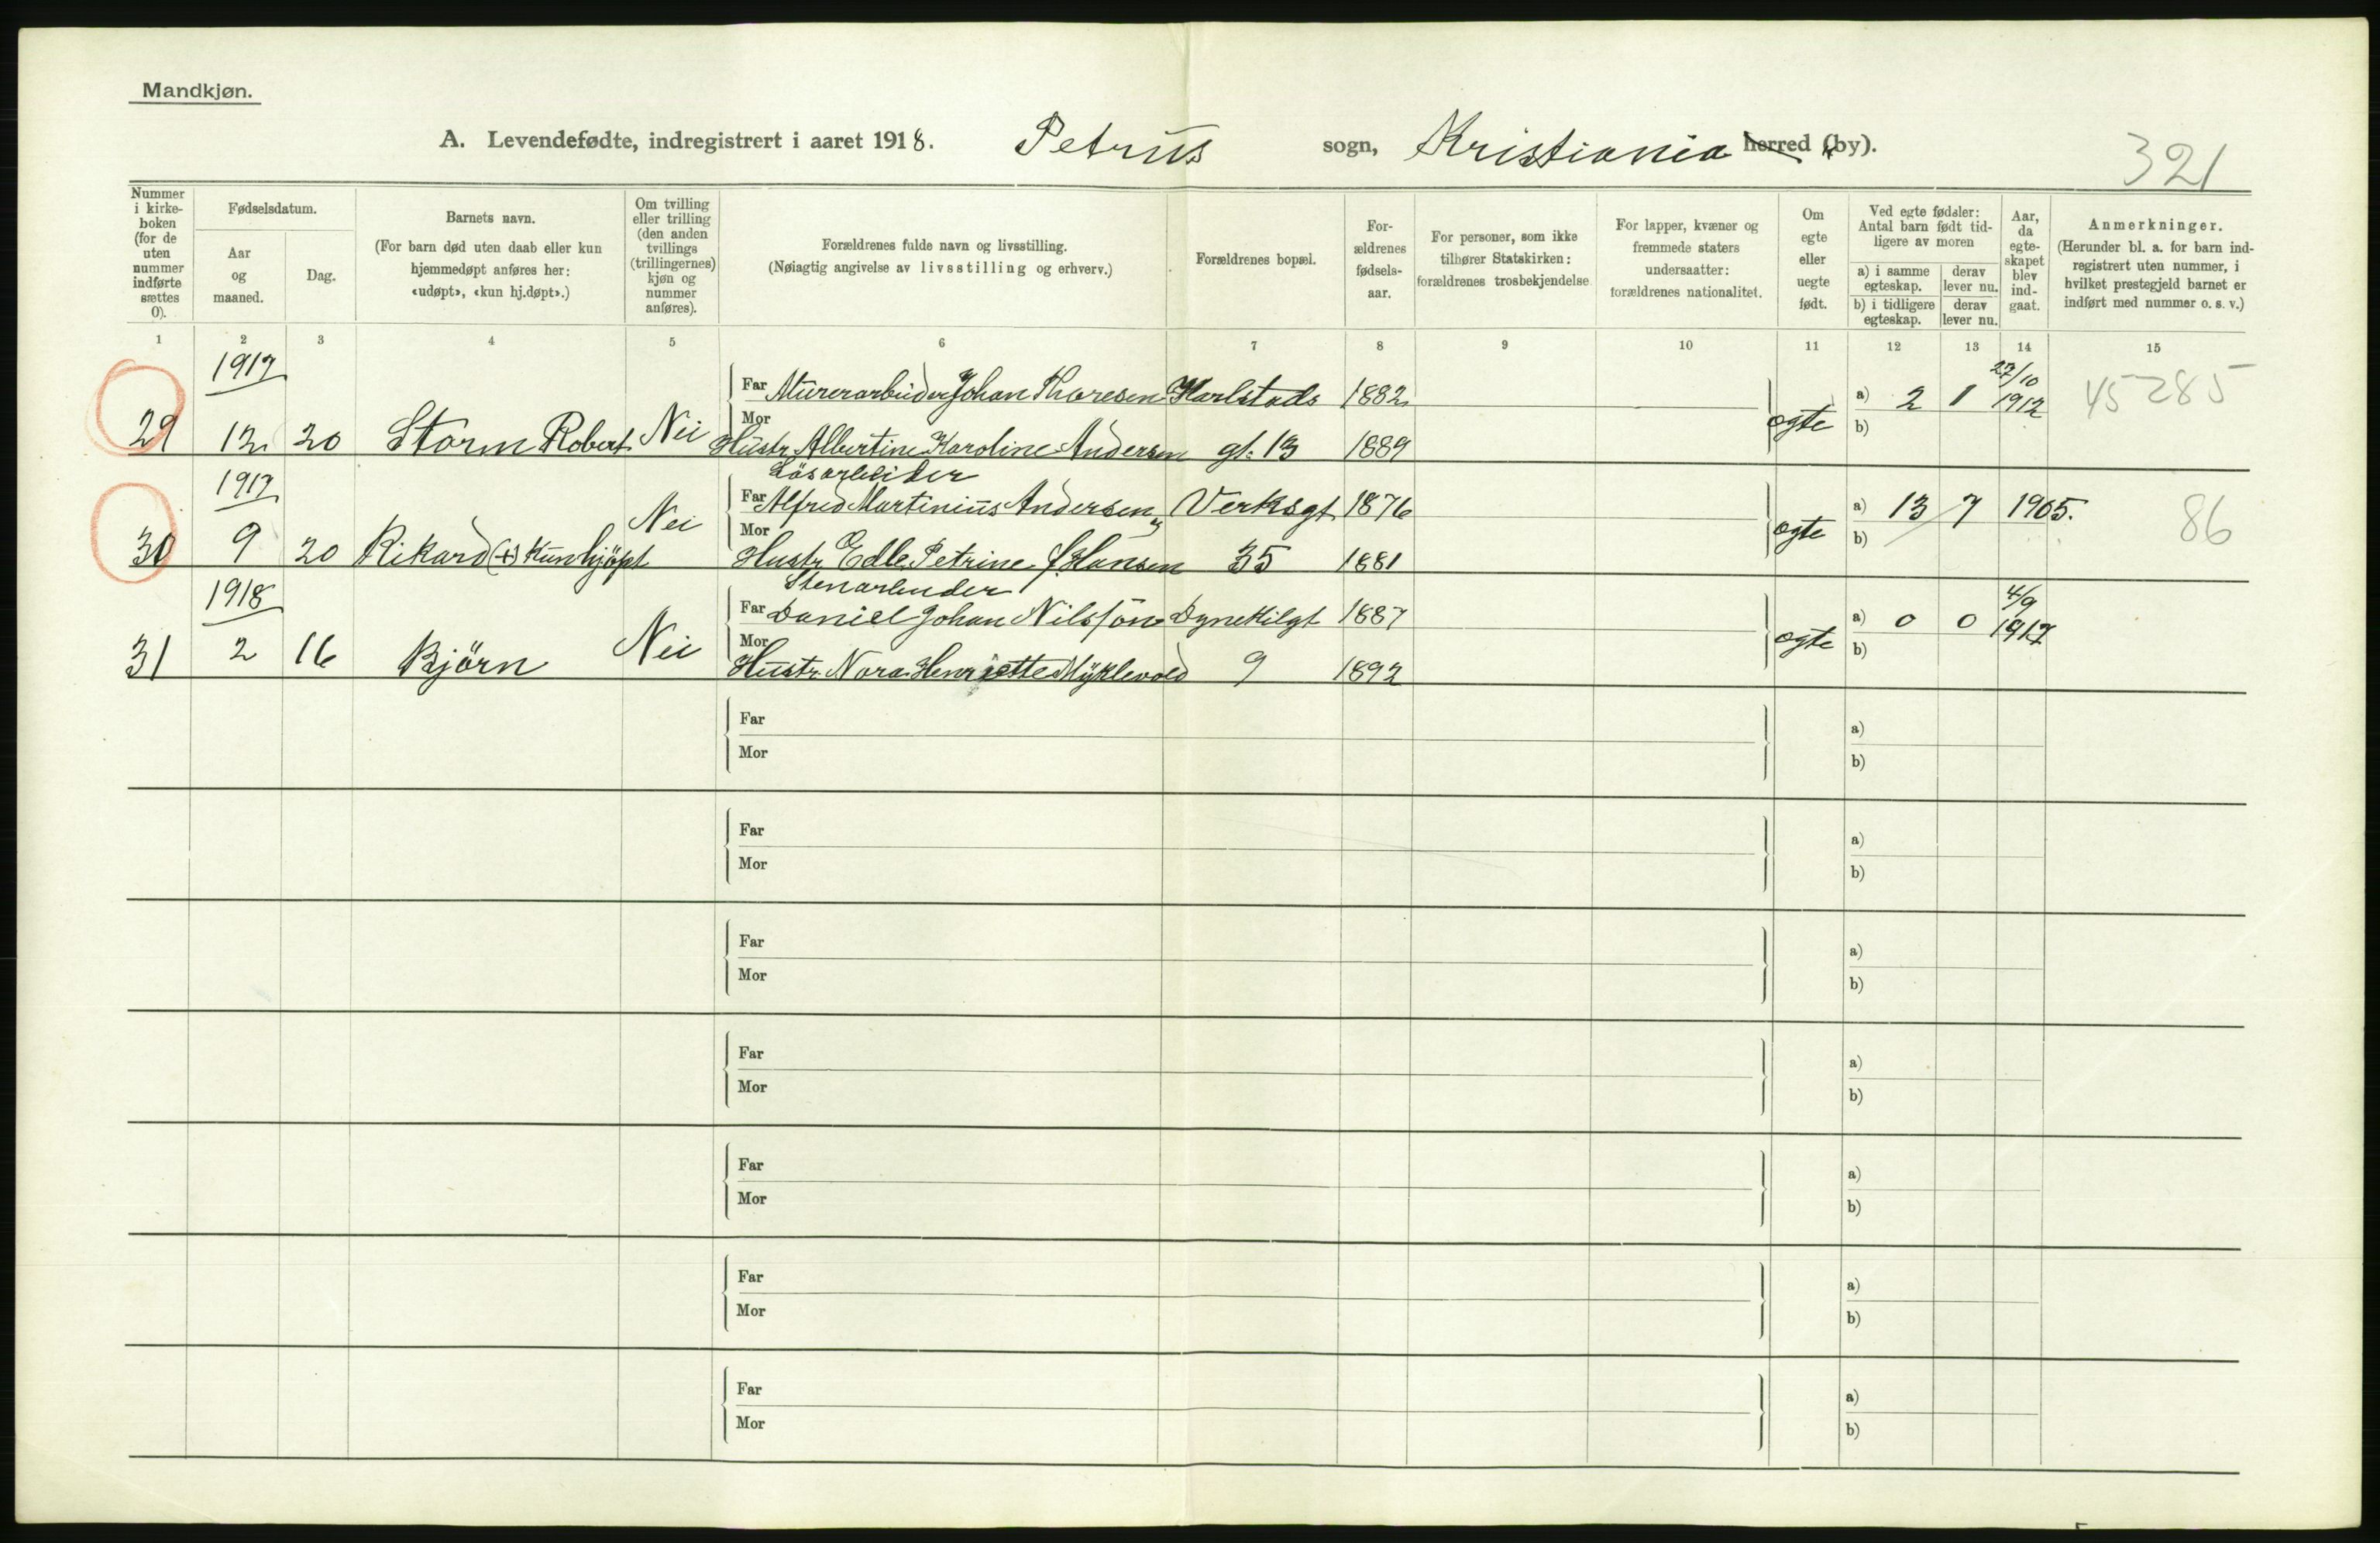 Mandkjøn.
A. Levendefødte, indregistrert i aaret 1918. Petrus sogn, Kristiania herred (by).
321
Nummer i kirke-boken (for de uten nummer indførte sættes 0).
Fødselsdatum.
Aar og maaned.
Dag.
Barnets navn.
(For barn død uten daab eller kun hjemmedøpt anføres her: «udøpt», «kun hj.døpt».)
Om tvilling eller trilling (den anden tvillings (trillingernes) kjøn og nummer anføres).
Forældrenes fulde navn og livsstilling.
(Nøiagtig angivelse av livsstilling og erhverv.)
Forældrenes bopæl.
For-ældrenes fødsels-aar.
For personer, som ikke tilhører Statskirken: forældrenes trosbekjendelse.
For lapper, kvæner og fremmede staters undersaatter: forældrenes nationalitet.
Om egte eller uegte født.
Ved egte fødsler: Antal barn født tid-ligere av moren
a) i samme egteskap.
derav lever nu.
b) i tidligere egteskap.
derav lever nu.
Aar, da egte-skapet blev ind-gaat.
Anmerkninger.
(Herunder bl. a. for barn ind-registrert uten nummer, i hvilket prestegjeld barnet er indført med nummer o. s. v.)
1 2 3 4 5 6 7 8 9 10 11 12 13 14 15
1917
Far Murerarbeider Johan Thoresen Karlstads 1882 a) 2 1 27/10 1912 45285
29 12 20 Storm Robert Nei Mor Hustr. Albertine Karoline Andersen gt. 13 1889 egte b)
1917 Løsarbeider
Far Alfred Martinius Andersen Verksgt 1876 a) 13 7 1905. 86
30 9 20 Rikard (+) Kun hjdøpt Nei Mor Hustr Edle Petrine f. Hansen 35 1881 egte b)
1918 Stenarbeider
Far Daniel Johan Nilsson Dynekilgt 1887 a) 0 0 4/9 1917
31 2 16 Björn Nei Mor Hustr. Nora Henriette Myklevold 9 1892 egte b)
Far a)
Mor b)
Far a)
Mor b)
Far a)
Mor b)
Far a)
Mor b)
Far a)
Mor b)
Far a)
Mor b)
Far a)
Mor b)